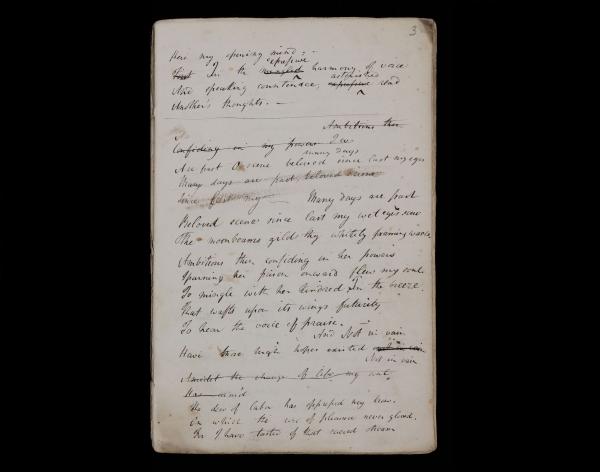 3
Here my opening mind; -
First In the mingled expressive harmony of voice
And speaking countenance, expressive asterisks and
Another's thoughts. —
Ambitious then
Confiding in my powers Dew
Are past O scene beloved since last my eyes
many days
Many days are past, beloved scene
Since last my Many days are past
Beloved scene since last my wet eyes saw
The moonbeams gild thy whitely foaming waves
Ambitious then confiding in her powers
Spurning her prison onward flew my soul
To mingle with her kindred in the breeze
That wafts upon its wings futurity
To hear the voice of praise.
And Not in vain
Have these high hopes existed not in vain
Not in vain
Amidst the change of life my
Has
The dew of labor has oppressed my brow
On which the rose of pleasure never glowed
For I have tasted of that sacred stream